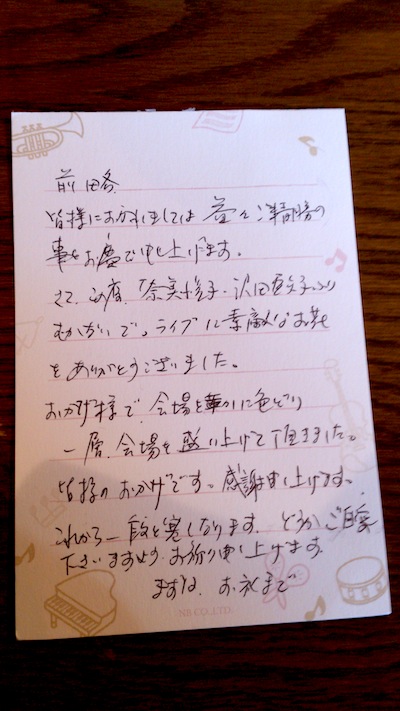 前略
皆様におかれましては 益々ご清勝の
事とお慶び申し上げます。
さて、この度、「奈美悦子・沢田亜矢子ふり
むかないで。ライブに素敵なお花
をありがとうございました。
おかげ様で、会場を華やかに色どり
一層、会場を盛り上げて頂きました。
皆様のおかげです。感謝申し上げます。
これから一段と寒くなります、どうかご自愛
下さいますよう、お祈り申し上げます。
まずは、お礼まで
NB CO.,LTD.